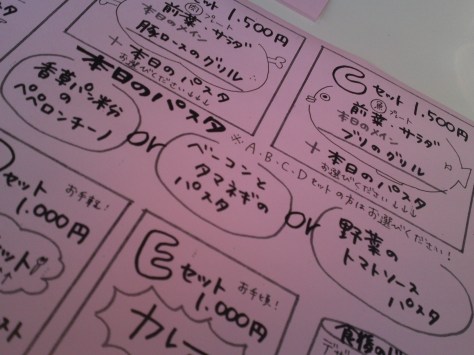 セット 1,500円
プレート
前菜・サラダ
本日のメイン
豚ロースのグリル
+本日のパスタ
お選びください↓↓↓
セット 1,500円
プレート
前菜・サラダ
本日のメイン
ブリのグリル
+本日のパスタ
お選びください↓↓↓
本日のパスタ
※A.B.C.Dセットの方はお選びください!
香草パン粉の
ペペロンチーノ
or
ベーコンと
タマネギの
パスタ
or
野菜の
トマトソース
パスタ
セット お手軽!
1,000円
Eセット お手頃!
1,000円
カレー